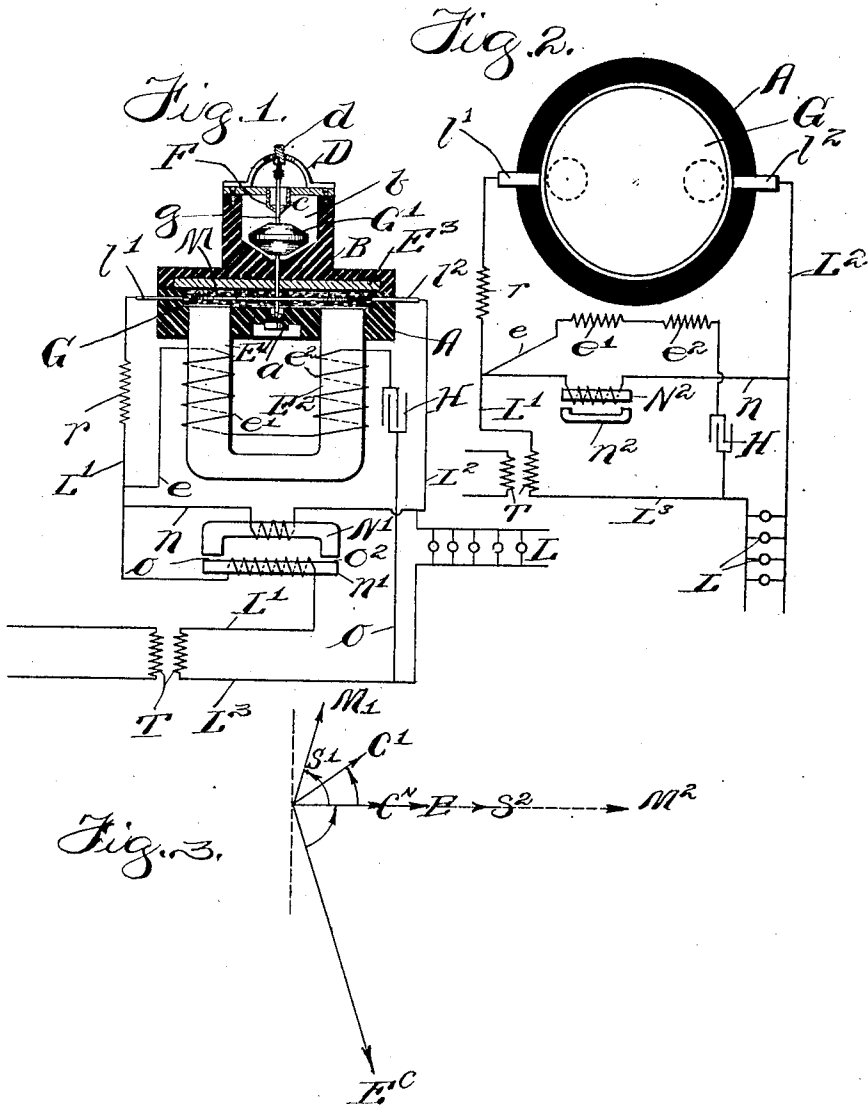 Fig. 1.
d
F
D
c
b
g
G¹
B
M
E³
l¹
l²
G
A
E⁴
a
e²
E²
H
e¹
r
L¹
e
L²
n
N¹
o
o²
n¹
L
L¹
O
T
L³
Fig. 2.
A
G
l¹
l²
L²
r
e
e¹
e²
N²
n
L¹
n²
H
T
L³
L
Fig. 3.
M₁
S¹
C¹
E
S²
M²
Eᶜ